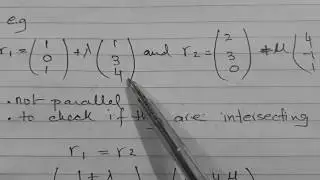 e.g
r₁ = (1 0 1) + λ (1 3 4) and r₂ = (2 3 0) + μ (4 -1 1
. not parallel
. to check if are intersecting
r₁ = r₂